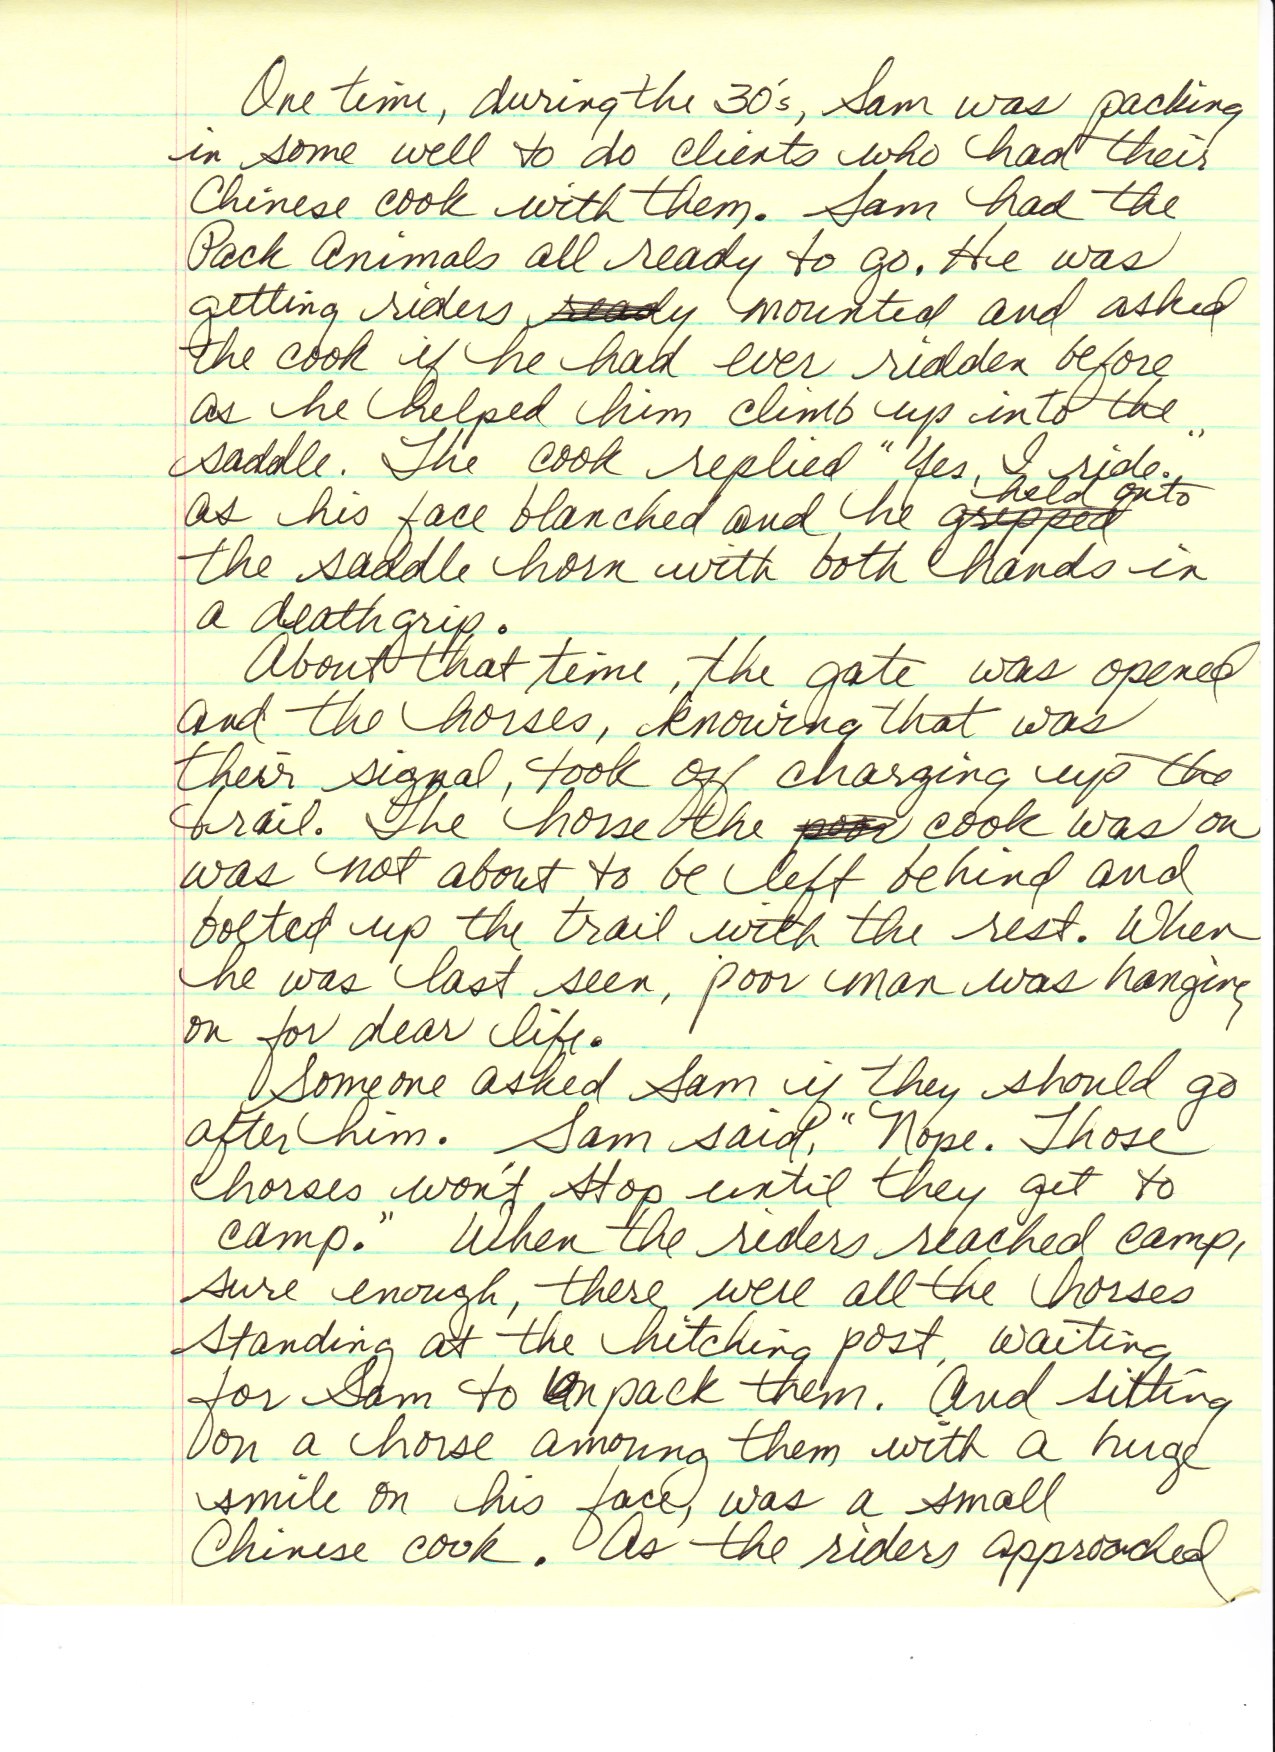 One time, during the 30's, Sam was packing
in some well to do clients who had their
Chinese cook with them. Sam had the
Pack Animals all ready to go. He was
getting riders ready mounted and asked
the cook if he had ever ridden before
as he helped him climb up into the
saddle. The cook replied "Yes, I ride."
as his face blanched and he gripped held onto
the saddle horn with both hands in
a death grip.
About that time, the gate was opened
and the horses, knowing that was
their signal, took off charging up the
trail. The horse the poor cook was on
was not about to be left behind and
bolted up the trail with the rest. When
he was last seen, poor man was hanging
on for dear life.
Someone asked Sam if they should go
after him. Sam said, "Nope. Those
horses won't stop until they get to
camp." When the riders reached camp,
sure enough, there were all the horses
standing at the hitching post, waiting
for Sam to unpack them. And sitting
on a horse amoung them with a huge
smile on his face, was a small
Chinese cook. As the riders approached